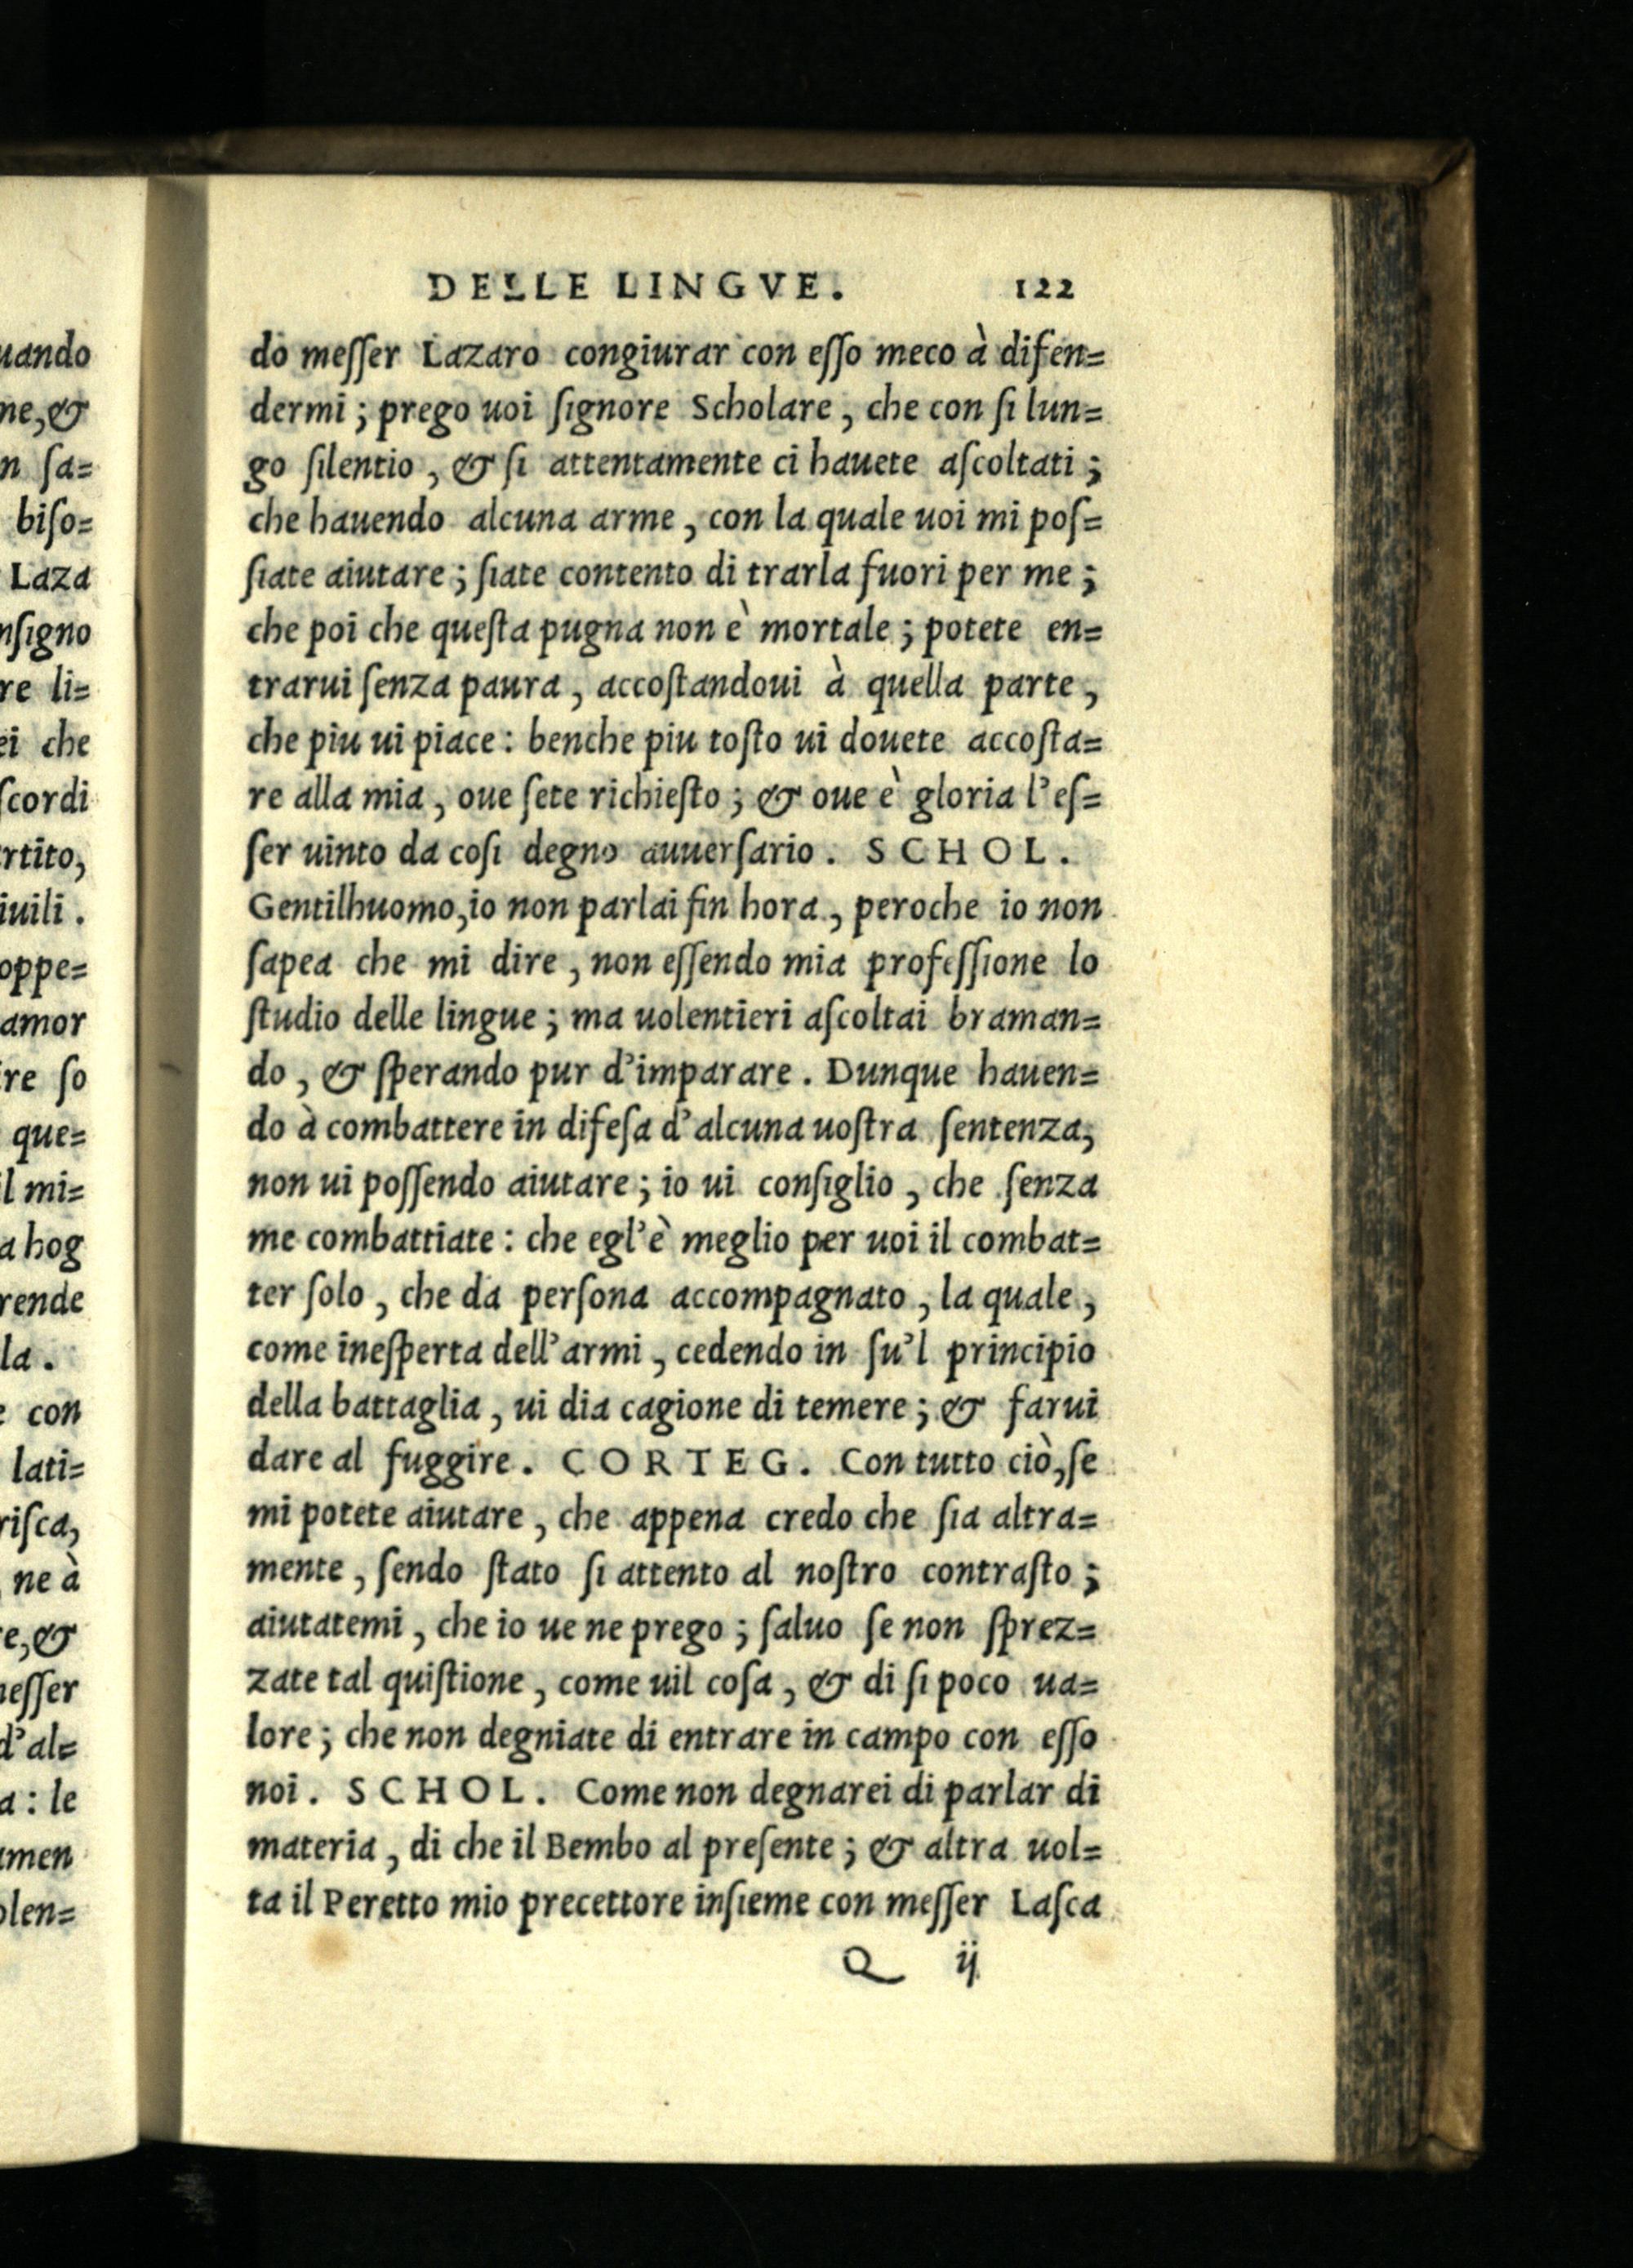 DELLE LINGVE. 122
do meſſer Lazaro congiurar con eſſo meco à difen=
dermi; prego uoi ſignore Scholare, che con ſi lun=
go ſilentio, & ſi attentamente ci hauete aſcoltati;
che hauendo alcuna arme, con la quale uoi mi poſ=
ſiate aiutare; ſiate contento di trarla fuori per me;
che poi che queſta pugna non è mortale; potete en=
trarui ſenza paura, accoſtandoui à quella parte,
che piu ui piace: benche piu toſto ui douete accoſta=
re alla mia, oue ſete richieſto; & oue è gloria l'eſ=
ſer uinto da coſi degno auuerſario. SCHOL.
Gentilhuomo, io non parlai fin hora, peroche io non
ſapea che mi dire, non eſſendo mia profeſſione lo
ſtudio delle lingue; ma uolentieri aſcoltai braman=
do, & ſperando pur d'imparare. Dunque hauen=
do à combattere in difeſa d'alcuna uoſtra ſentenza,
non ui poſſendo aiutare; io ui conſiglio, che ſenza
me combattiate: che egl'è meglio per uoi il combat=
ter ſolo, che da perſona accompagnato, la quale,
come ineſperta dell'armi, cedendo in ſu'l principio
della battaglia, ui dia cagione di temere; & farui
dare al fuggire. CORTEG. Con tutto ciò, ſe
mi potete aiutare, che appena credo che ſia altra=
mente, ſendo ſtato ſi attento al noſtro contraſto;
aiutatemi, che io ue ne prego; ſaluo ſe non ſprez=
zate tal quiſtione, come uil coſa, & di ſi poco ua=
lore; che non degniate di entrare in campo con eſſo
noi. SCHOL. Come non degnarei di parlar di
materia, di che il Bembo al preſente; & altra uol=
ta il Peretto mio precettore inſieme con meſſer Laſca
Q ij
uando
ne, &
n ſa=
biſo=
Laza
nſigno
re li=
ei che
ſcordi
rtito,
iuili.
oppe=
amor
re ſo
que=
il mi=
a hog
rende
la.
e con
lati=
riſca,
ne à
e, &
neſſer
d'al=
a: le
amen
olen=